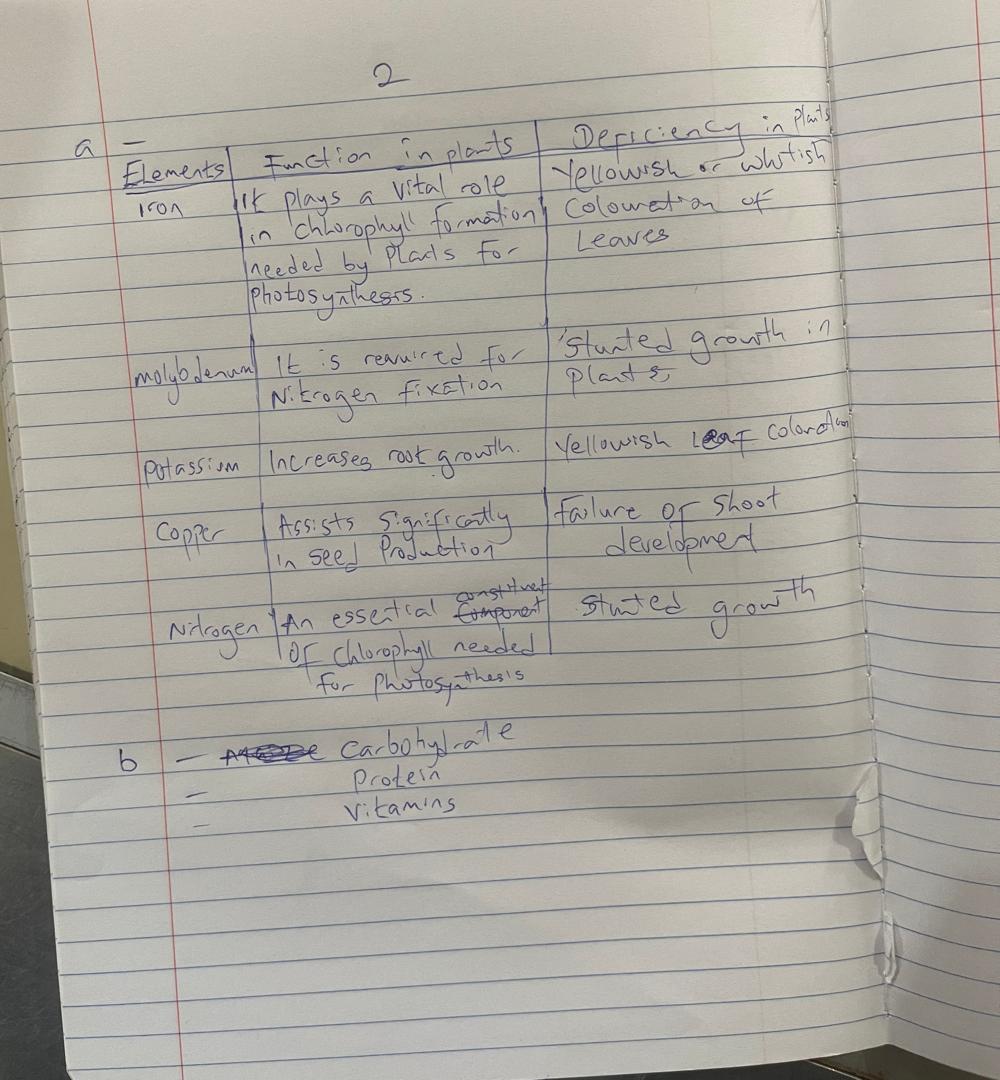 2
a –
Elements | Function in plants | Deficiency in Plants
iron | It plays a vital role | Yellowish or whitish
in chlorophyll formation | Colouration of
needed by Plants For | Leaves
Photosynthesis.
molybdenum | It is required For | Stunted growth in
Nitrogen fixation | Plants
Potassium | Increases root growth. | Yellowish Leaf Coloration
Copper | Assists Significantly | Failure OF Shoot
in seed Production | development
Nitrogen | An essential constituent | Stunted growth
OF Chlorophyll needed
for Photosynthesis
b – Carbohydrate
– Protein
– Vitamins